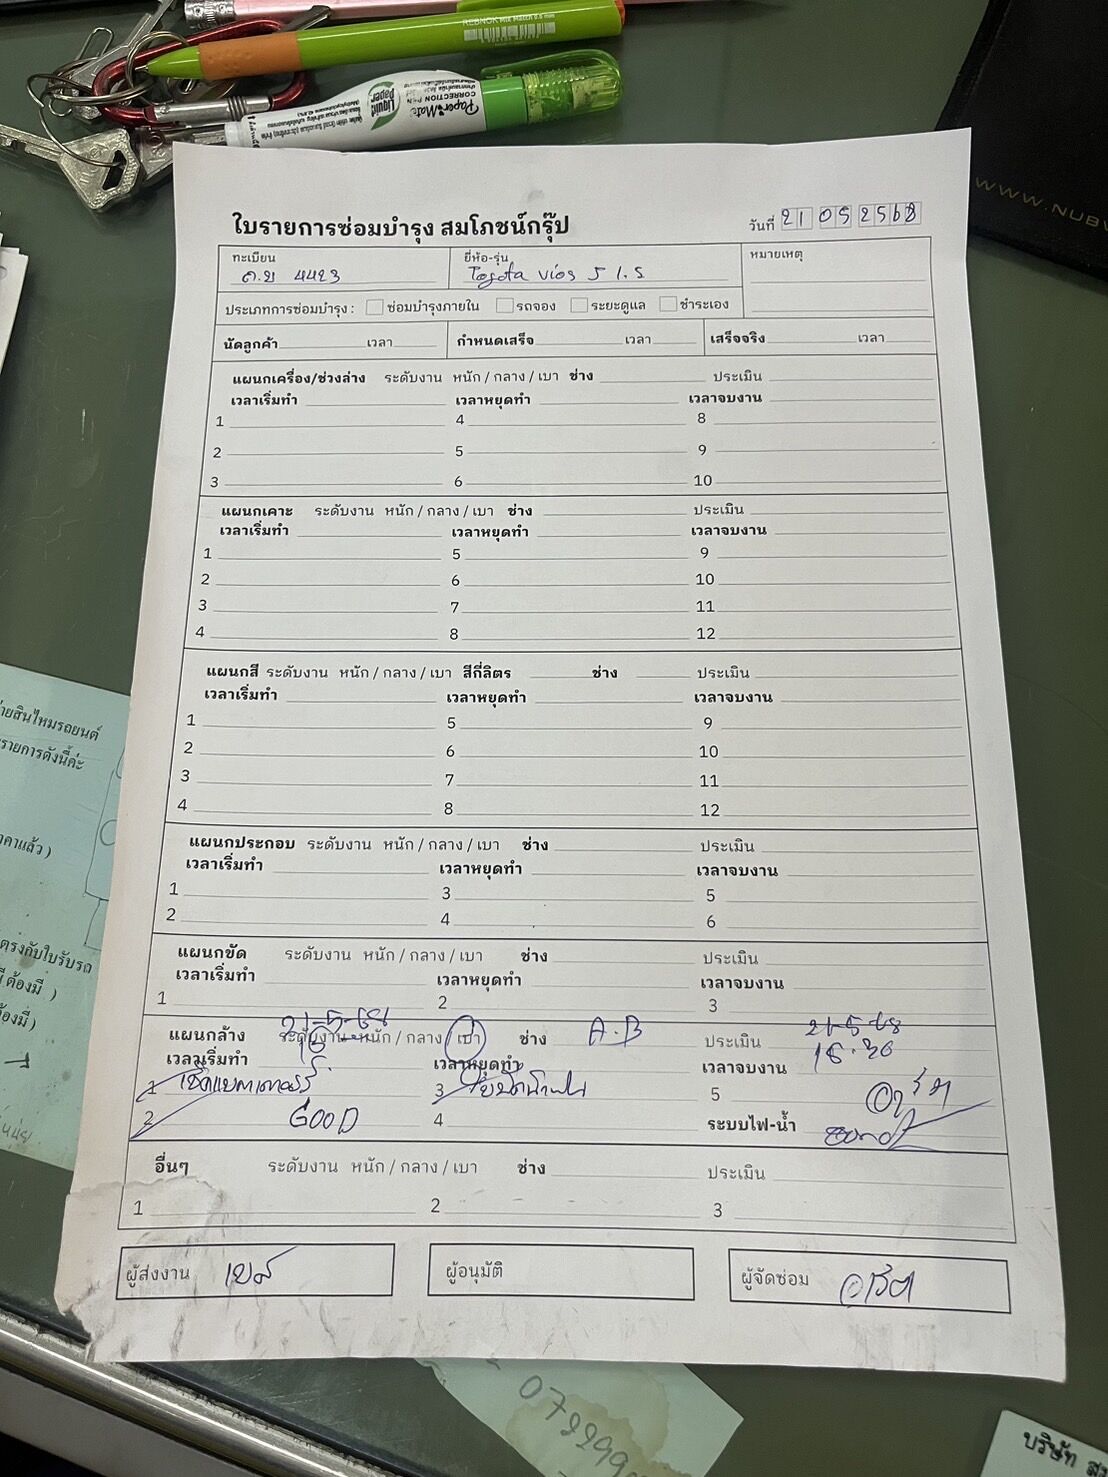 REBNOK Mix Match 0.5 mm
Paper Mate
CORRECTION PEN
Liquid Paper
WWW.NUBW
ใบรายการซ่อมบำรุง สมโภชน์กรุ๊ป
วันที่ 21 05 2568
ทะเบียน
4423
ยี่ห้อ-รุ่น
Toyota vios J 1.5
หมายเหตุ
ประเภทการซ่อมบำรุง : ซ่อมบำรุงภายใน รถจอง ระยะดูแล ชำระเอง
นัดลูกค้า เวลา กำหนดเสร็จ เวลา เสร็จจริง เวลา
แผนกเครื่อง/ช่วงล่าง ระดับงาน หนัก / กลาง / เบา ช่าง ประเมิน
เวลาเริ่มทำ เวลาหยุดทำ เวลาจบงาน
1 4 8
2 5 9
3 6 10
แผนกเคาะ ระดับงาน หนัก / กลาง / เบา ช่าง ประเมิน
เวลาเริ่มทำ เวลาหยุดทำ เวลาจบงาน
1 5 9
2 6 10
3 7 11
4 8 12
แผนกสี ระดับงาน หนัก / กลาง / เบา สีกี่ลิตร ช่าง ประเมิน
เวลาเริ่มทำ เวลาหยุดทำ เวลาจบงาน
1 5 9
2 6 10
3 7 11
4 8 12
แผนกประกอบ ระดับงาน หนัก / กลาง / เบา ช่าง ประเมิน
เวลาเริ่มทำ เวลาหยุดทำ เวลาจบงาน
1 3 5
2 4 6
แผนกขัด ระดับงาน หนัก / กลาง / เบา ช่าง ประเมิน
เวลาเริ่มทำ เวลาหยุดทำ เวลาจบงาน
1 2 3
21-5-68 21-5-68
แผนกล้าง ระดับงาน หนัก / กลาง / เบา ช่าง A.B ประเมิน
เวลาเริ่มทำ เวลาหยุดทำ เวลาจบงาน
1 เช็คแบตเตอรี่ 3 5
2 GOOD 4 ระบบไฟ-น้ำ
อื่นๆ ระดับงาน หนัก / กลาง / เบา ช่าง ประเมิน
1 2 3
ผู้ส่งงาน
ผู้อนุมัติ
ผู้จัดซ่อม
ายสินไหมรถยนต์
รายการดังนี้ค่ะ
าคาแล้ว )
ตรงกับใบรับรถ
มี ต้องมี )
ต้องมี )
บริษัท